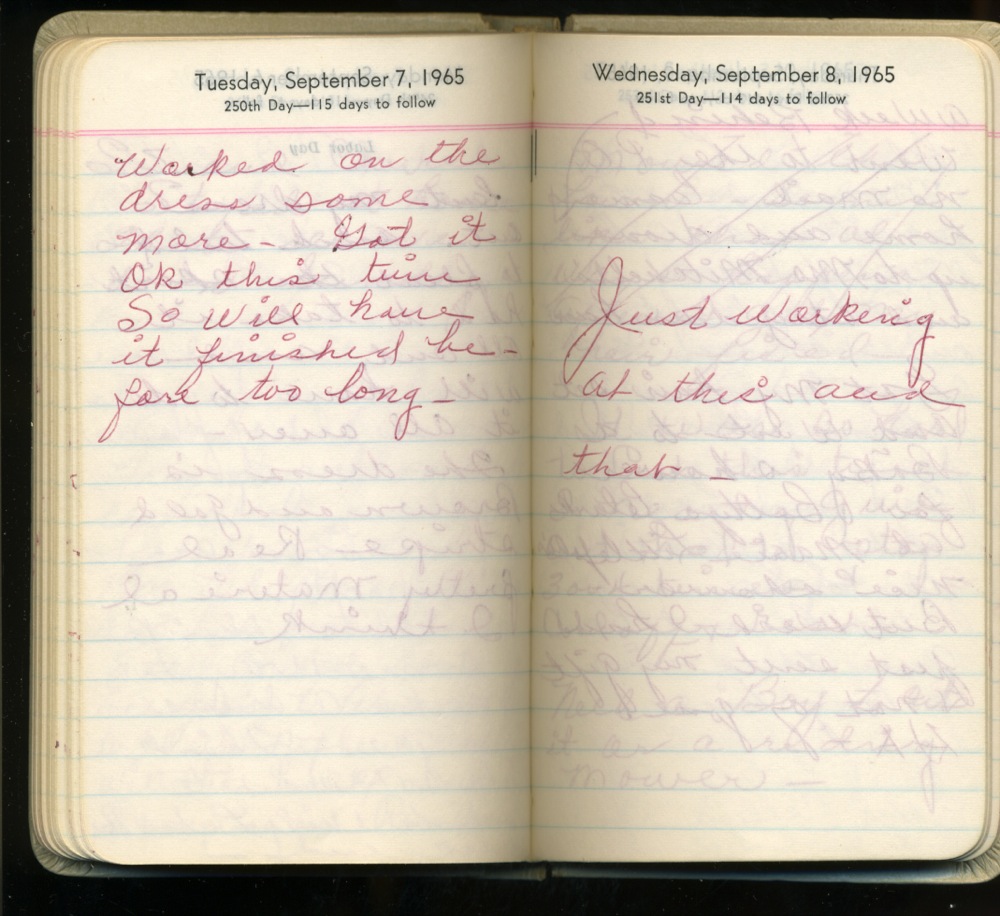 Tuesday, September 7, 1965
250th Day—115 days to follow
Worked on the
dress some
more - Got it
Ok this time
So will have
it finished be-
fore too long -
Wednesday, September 8, 1965
251st Day—114 days to follow
Just working
at this and
that -